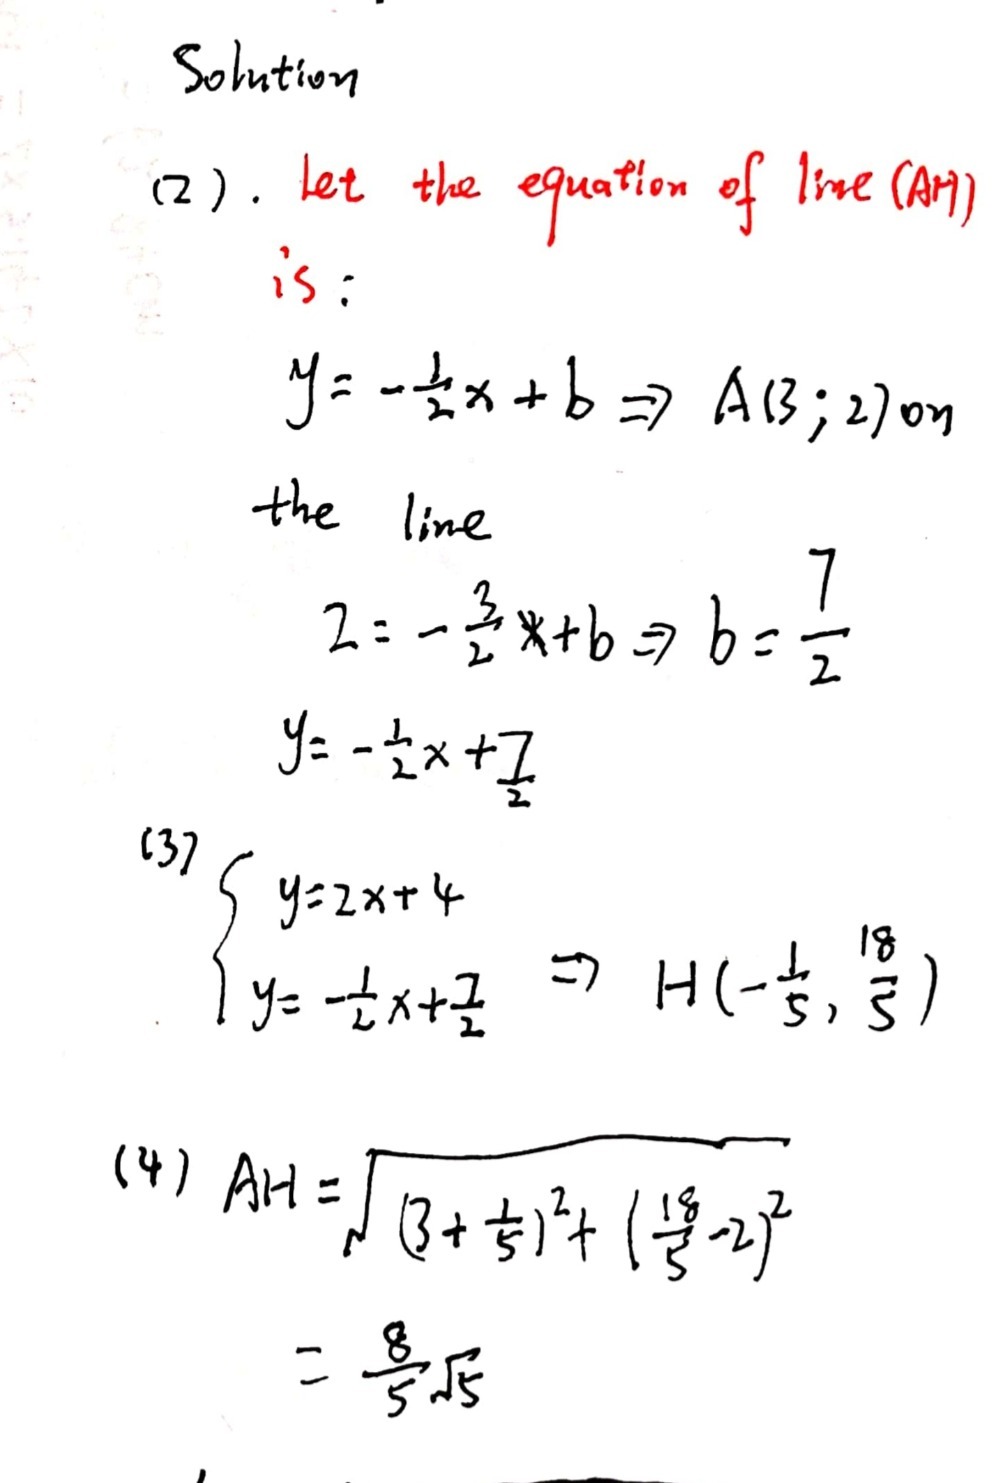 Solution
(2). Let the equation of line (AH)
is:
y = -1/2 x + b ⇒ A(3; 2) on
the line
2 = -3/2 + b ⇒ b = 7/2
y = -1/2 x + 7/2
(3)
{ y = 2x + 4
y = -1/2 x + 7/2 ⇒ H(-1/5, 18/5)
(4) AH = √((3 + 1/5)² + (18/5 - 2)²)
= 8/5 √5